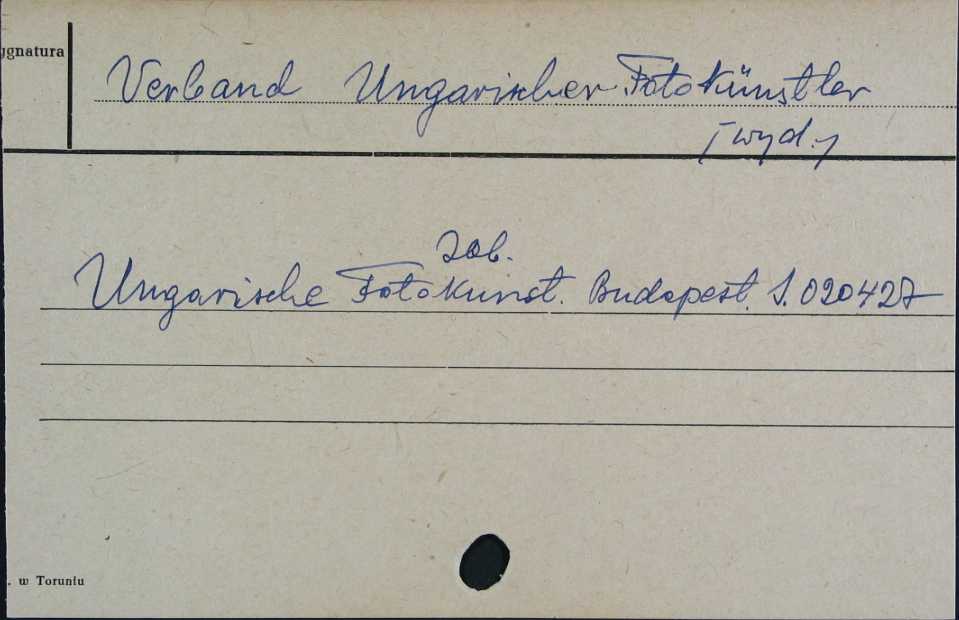 ygnatura
Verband Ungarischer Fotokünstler
/wyd./
Zob.
Ungarische Fotokunst. Budapest. S. 020427
. w Toruniu